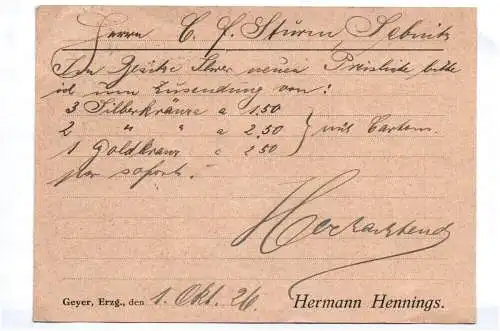 Herrn C. F. Sturm, Sebnitz
Im Besitze Ihrer neuen Preisliste bitte
ich um Zusendung von:
3 Silberkränze a 1,50
2 " " a 2,50 } mit Carton.
1 Goldkranz a 2,50
per sofort.
Hochachtend
Geyer, Erzg., den 1. Okt. 26. Hermann Hennings.